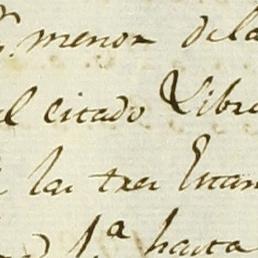 menor dela
el citado Libro
las tres Estan
1ª hasta